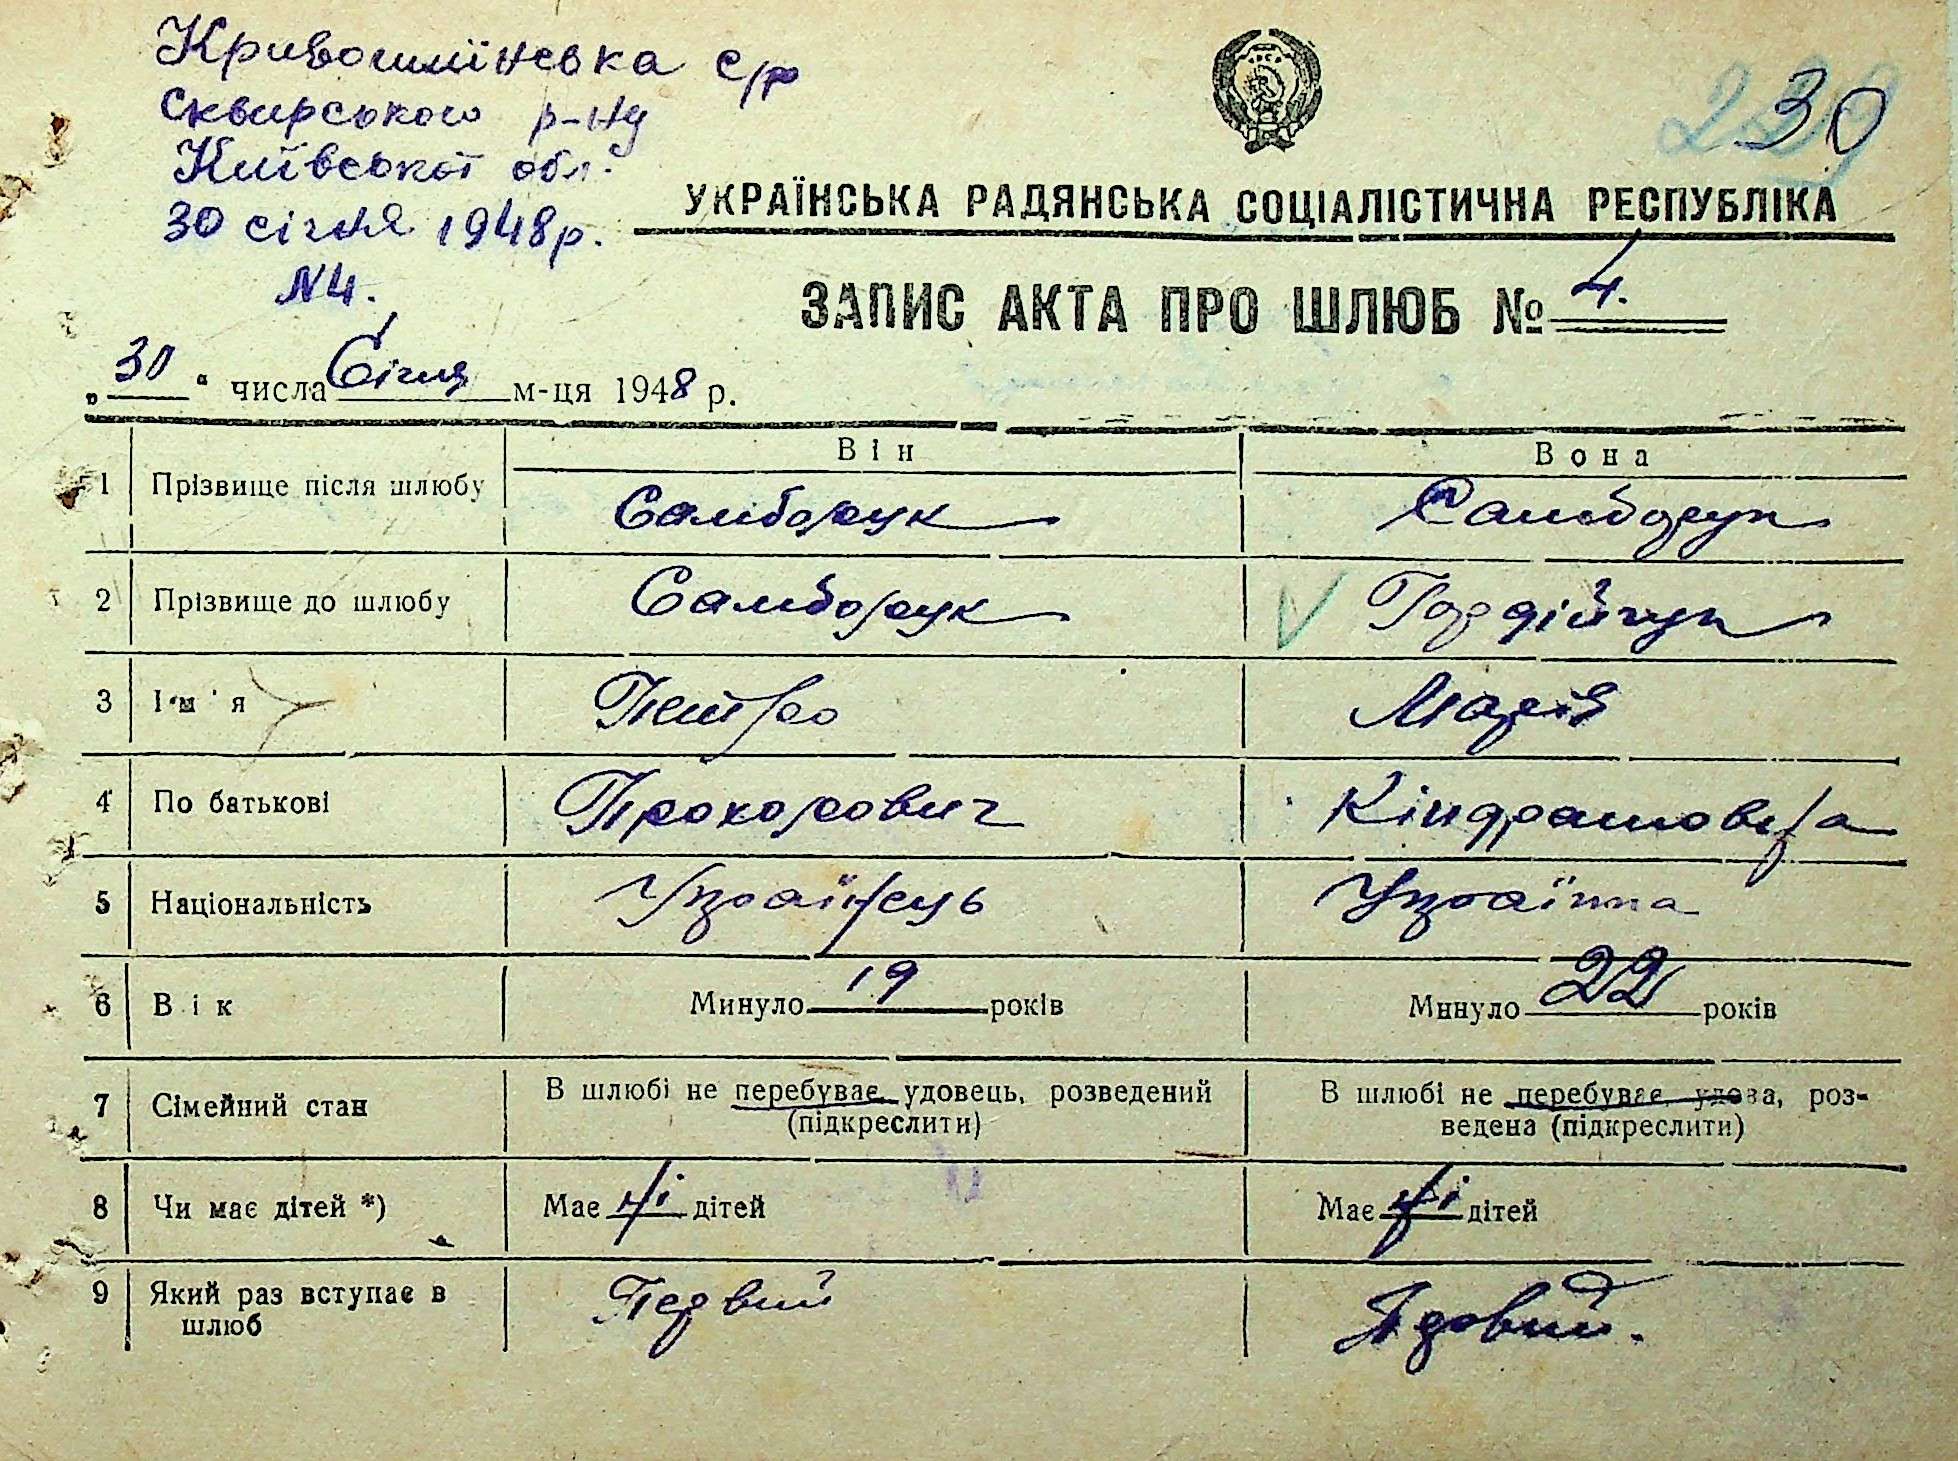 Кривошиїнська с/р
Сквирського р-ну
Київської обл.
30 січня 1948 р.
N 4.
30
УКРАЇНСЬКА РАДЯНСЬКА СОЦІАЛІСТИЧНА РЕСПУБЛІКА
ЗАПИС АКТА ПРО ШЛЮБ № 4.
„30“ числа Січня м-ця 1948 р.
Він Вона
1 Прізвище після шлюбу Самборук Самборук
2 Прізвище до шлюбу Самборук Гордійчук
3 Ім'я Петро Марія
4 По батькові Прохорович Кіндратовна
5 Національність Українець Українка
6 Вік Минуло 19 років Минуло 22 років
7 Сімейний стан В шлюбі не перебуває, удовець, розведений (підкреслити) В шлюбі не перебуває, удова, роз-
ведена (підкреслити)
8 Чи має дітей *) Має ні дітей Має ні дітей
9 Який раз вступає в
шлюб Первий Первий.